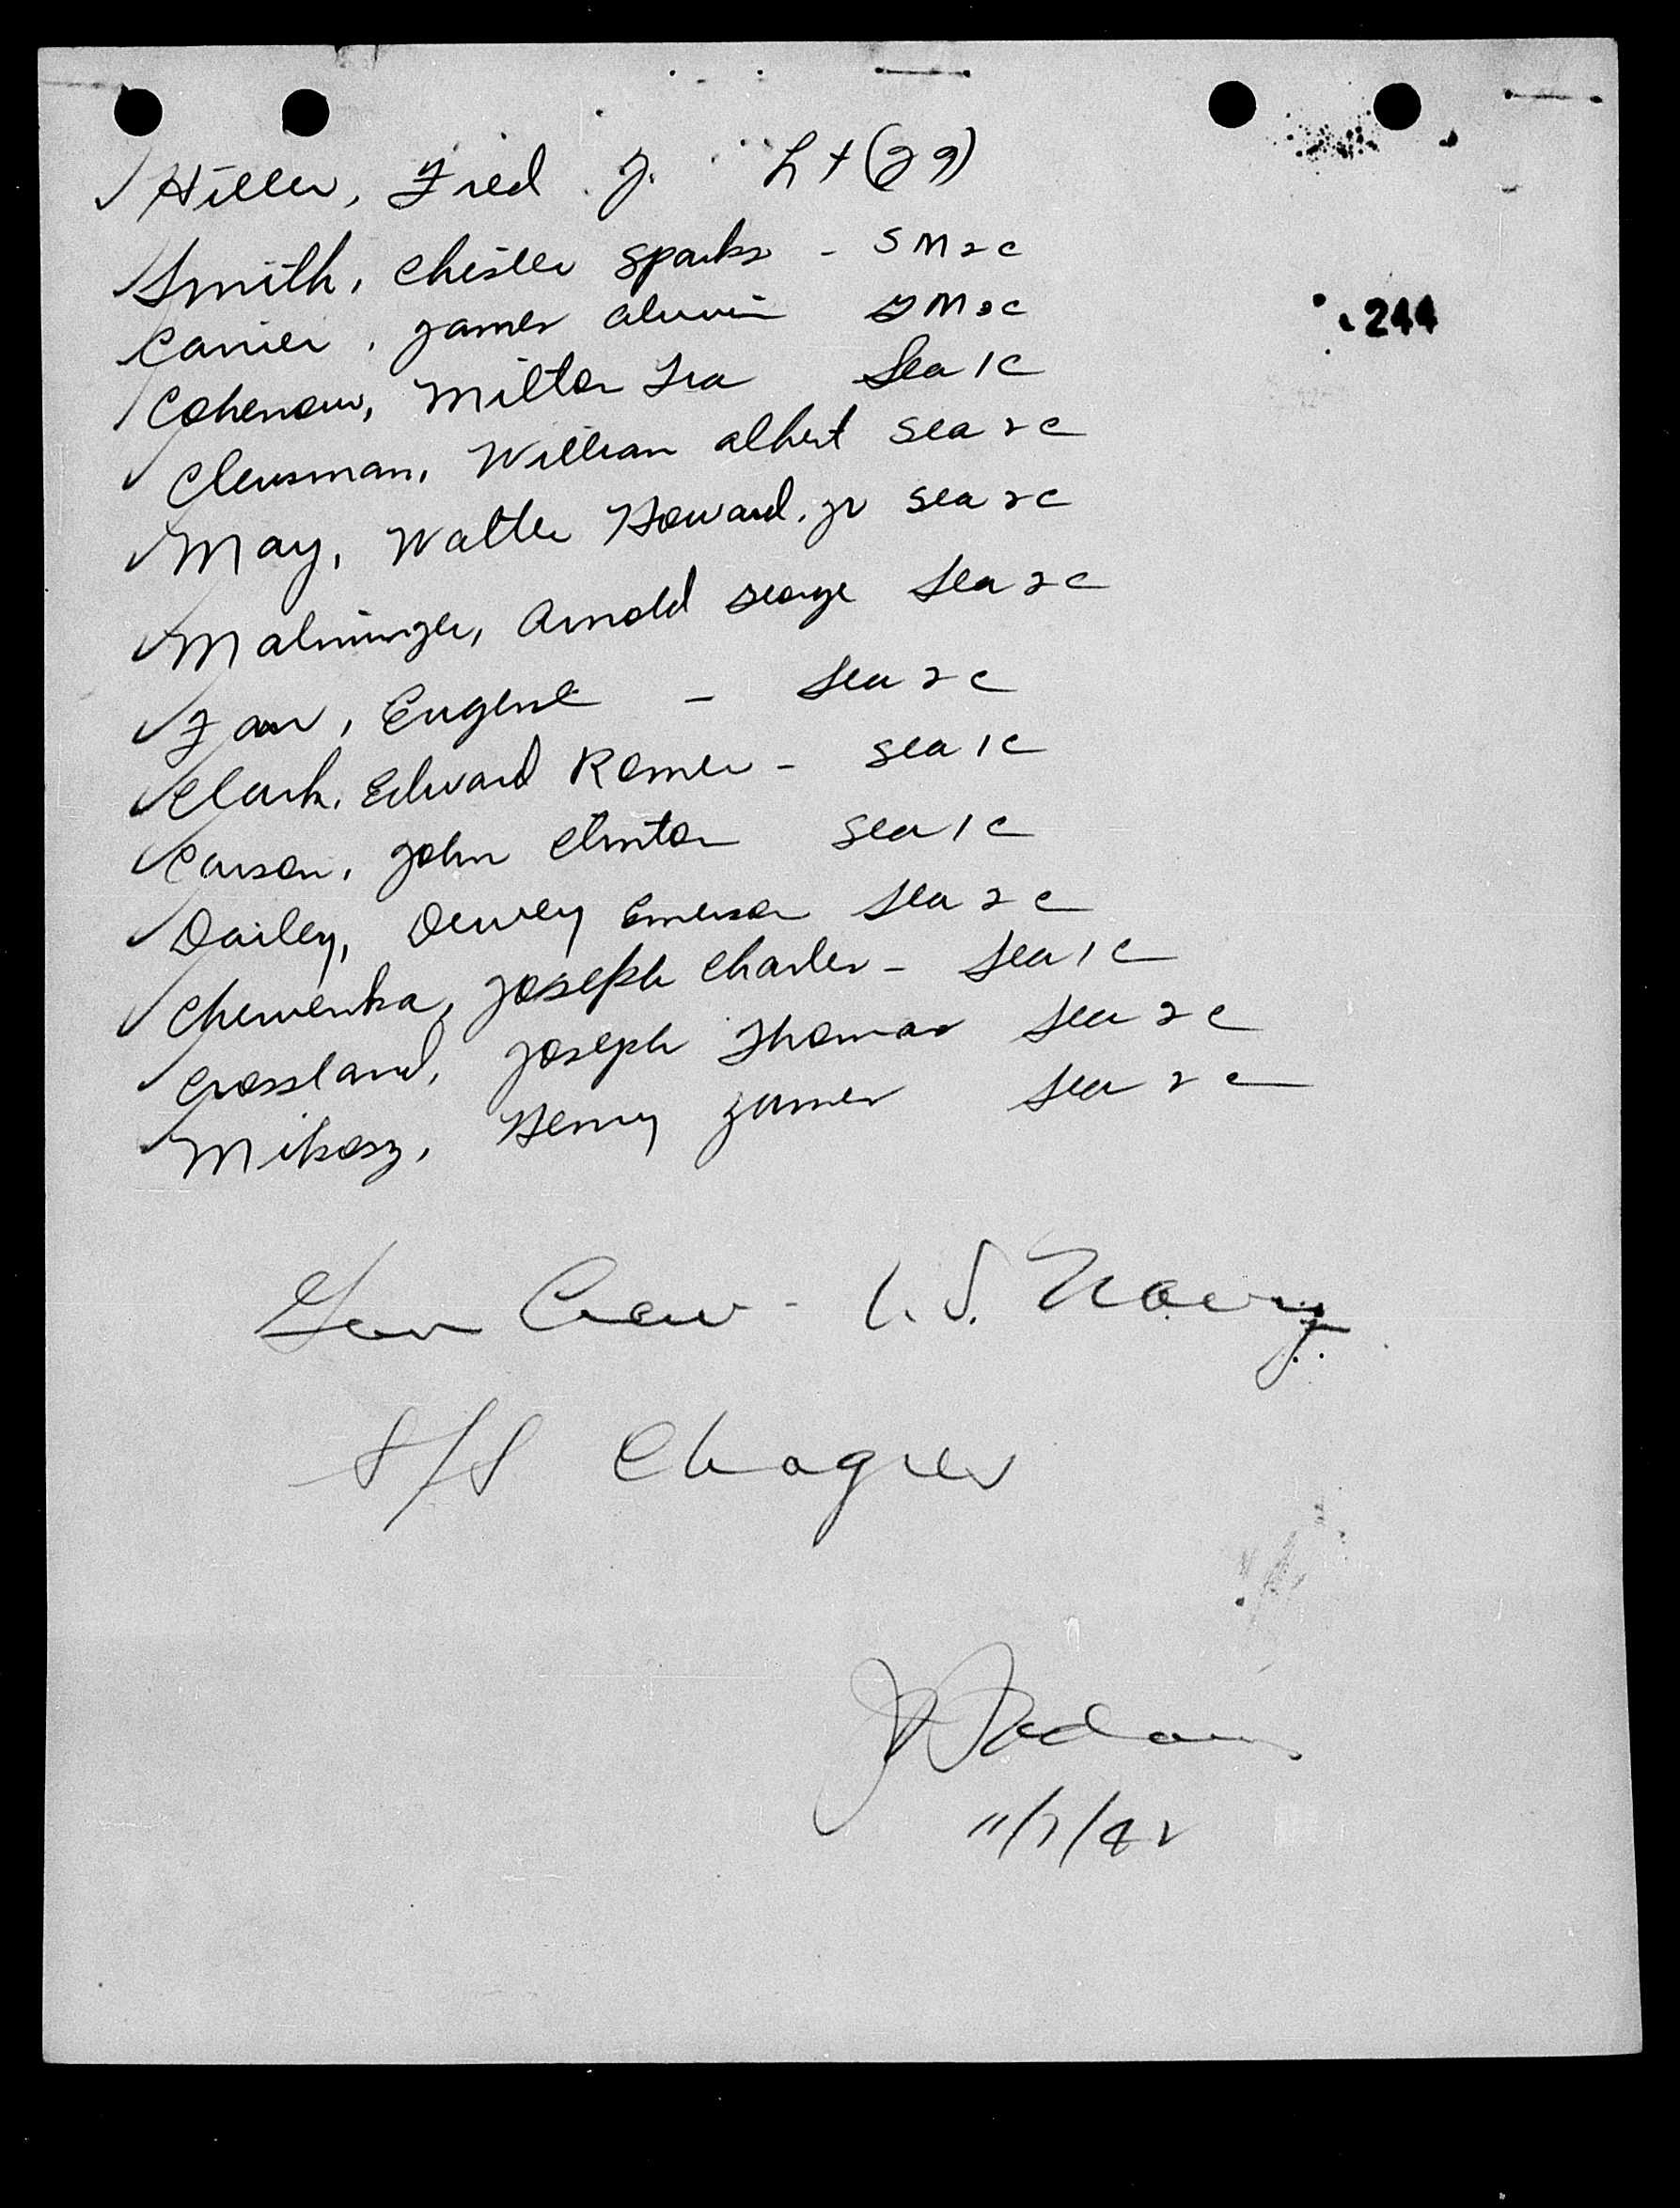 Hiller, Fred J. Lt (jg)
Smith, Chester Sparks - SM2c
244
Carrier, James Alvin GM3c
Cohenour, Milton Ira Sea 1c
Clensman, William Albert Sea 2c
May, Walter Howard, Jr Sea 2c
Malminger, Arnold George Sea 2c
Eugene - Sea 2c
Clark, Edward Romer - Sea 1c
Carson, John Clinton Sea 1c
Dailey, Dewey Emerson Sea 2c
Cherwenka, Joseph Charles - Sea 1c
Crossland, Joseph Thomas Sea 2c
Mikosz, Henry James Sea 2c
Gun Crew - U.S. Navy
S/S Chagres
11/7/42